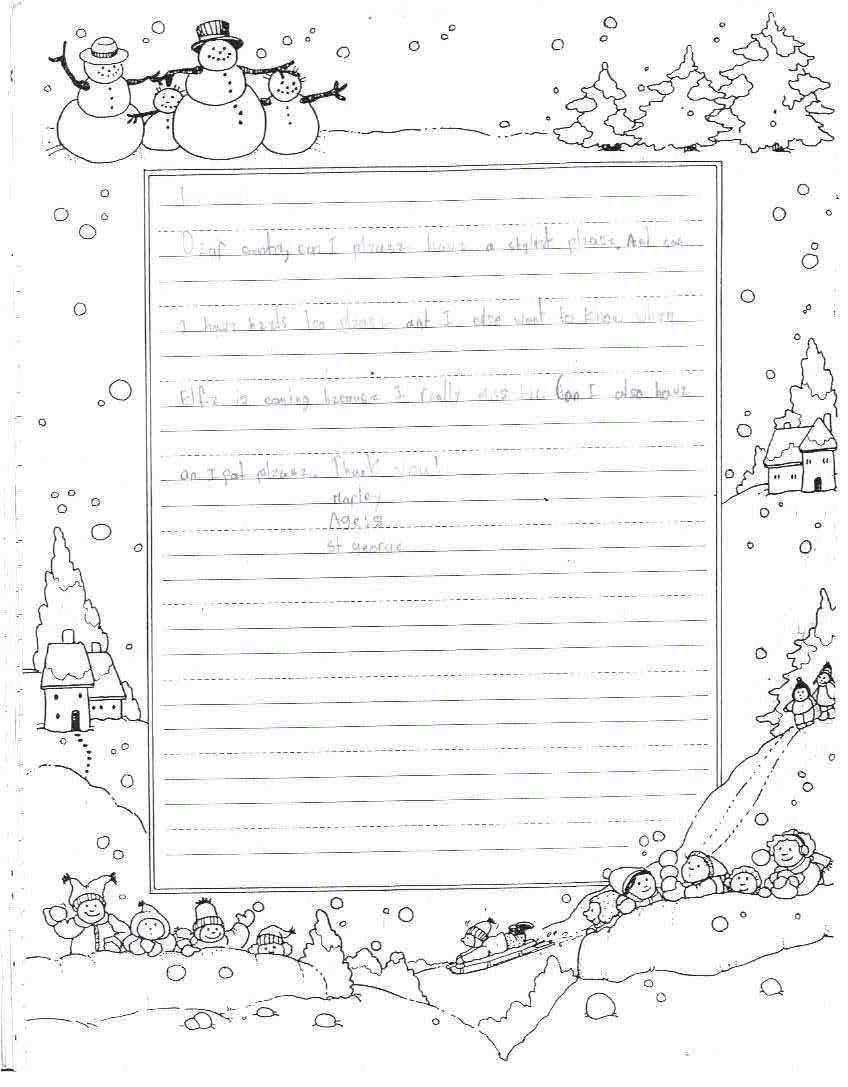 Dear santa, can I please have a stylist please, And can
I have heels too please and I also want to know when
Elfie is coming because I really miss her. Can I also have
an I pat please. Thank you!
Marley
Age: 8
St George